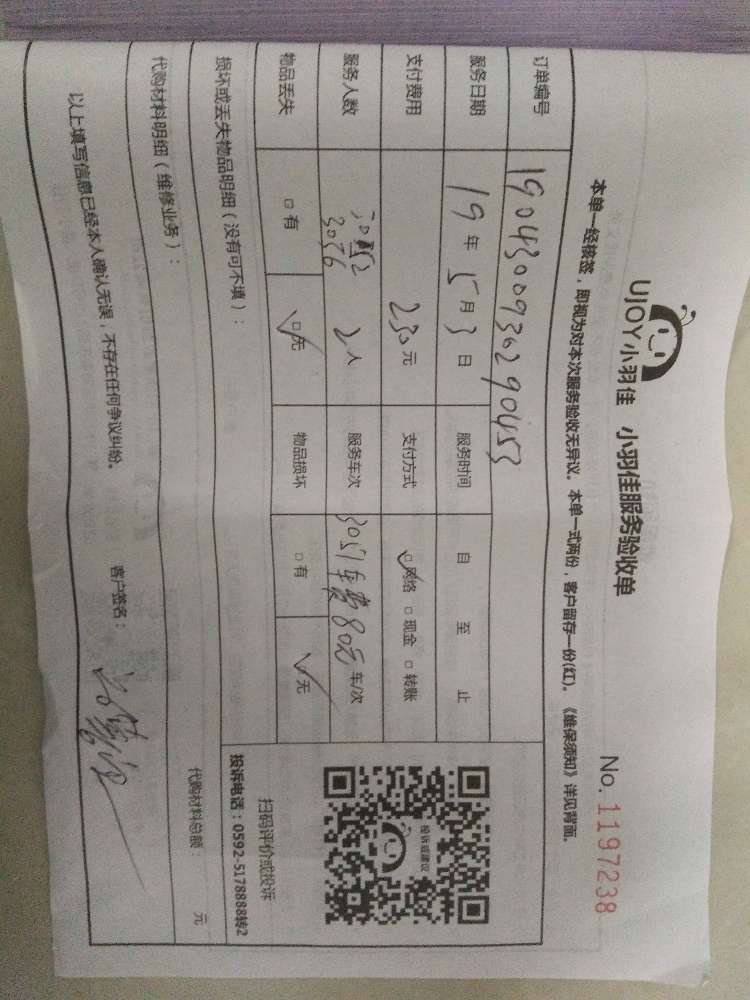 UJOY小羽佳 小羽佳服务验收单
No. 1197238
本单一经核签，即视为对本次服务验收无异议。本单一式两份，客户留存一份(红)。《维保须知》详见背面。
订单编号 190430093029 0453
服务日期 19年5月3日 服务时间 自 至 止
支付费用 230元 支付方式 □网络 □现金 □转账
服务人数 3056 2人 服务车次 3051车费80元 车/次
物品丢失 □有 □无 物品损坏 □有 □无
损坏或丢失物品明细（没有可不填）：
代购材料明细（维修业务）：
代购材料总额： 元
投诉或建议
扫码评价或投诉
投诉电话：0592-5178888转2
以上填写信息已经本人确认无误，不存在任何争议纠纷。 客户签名：